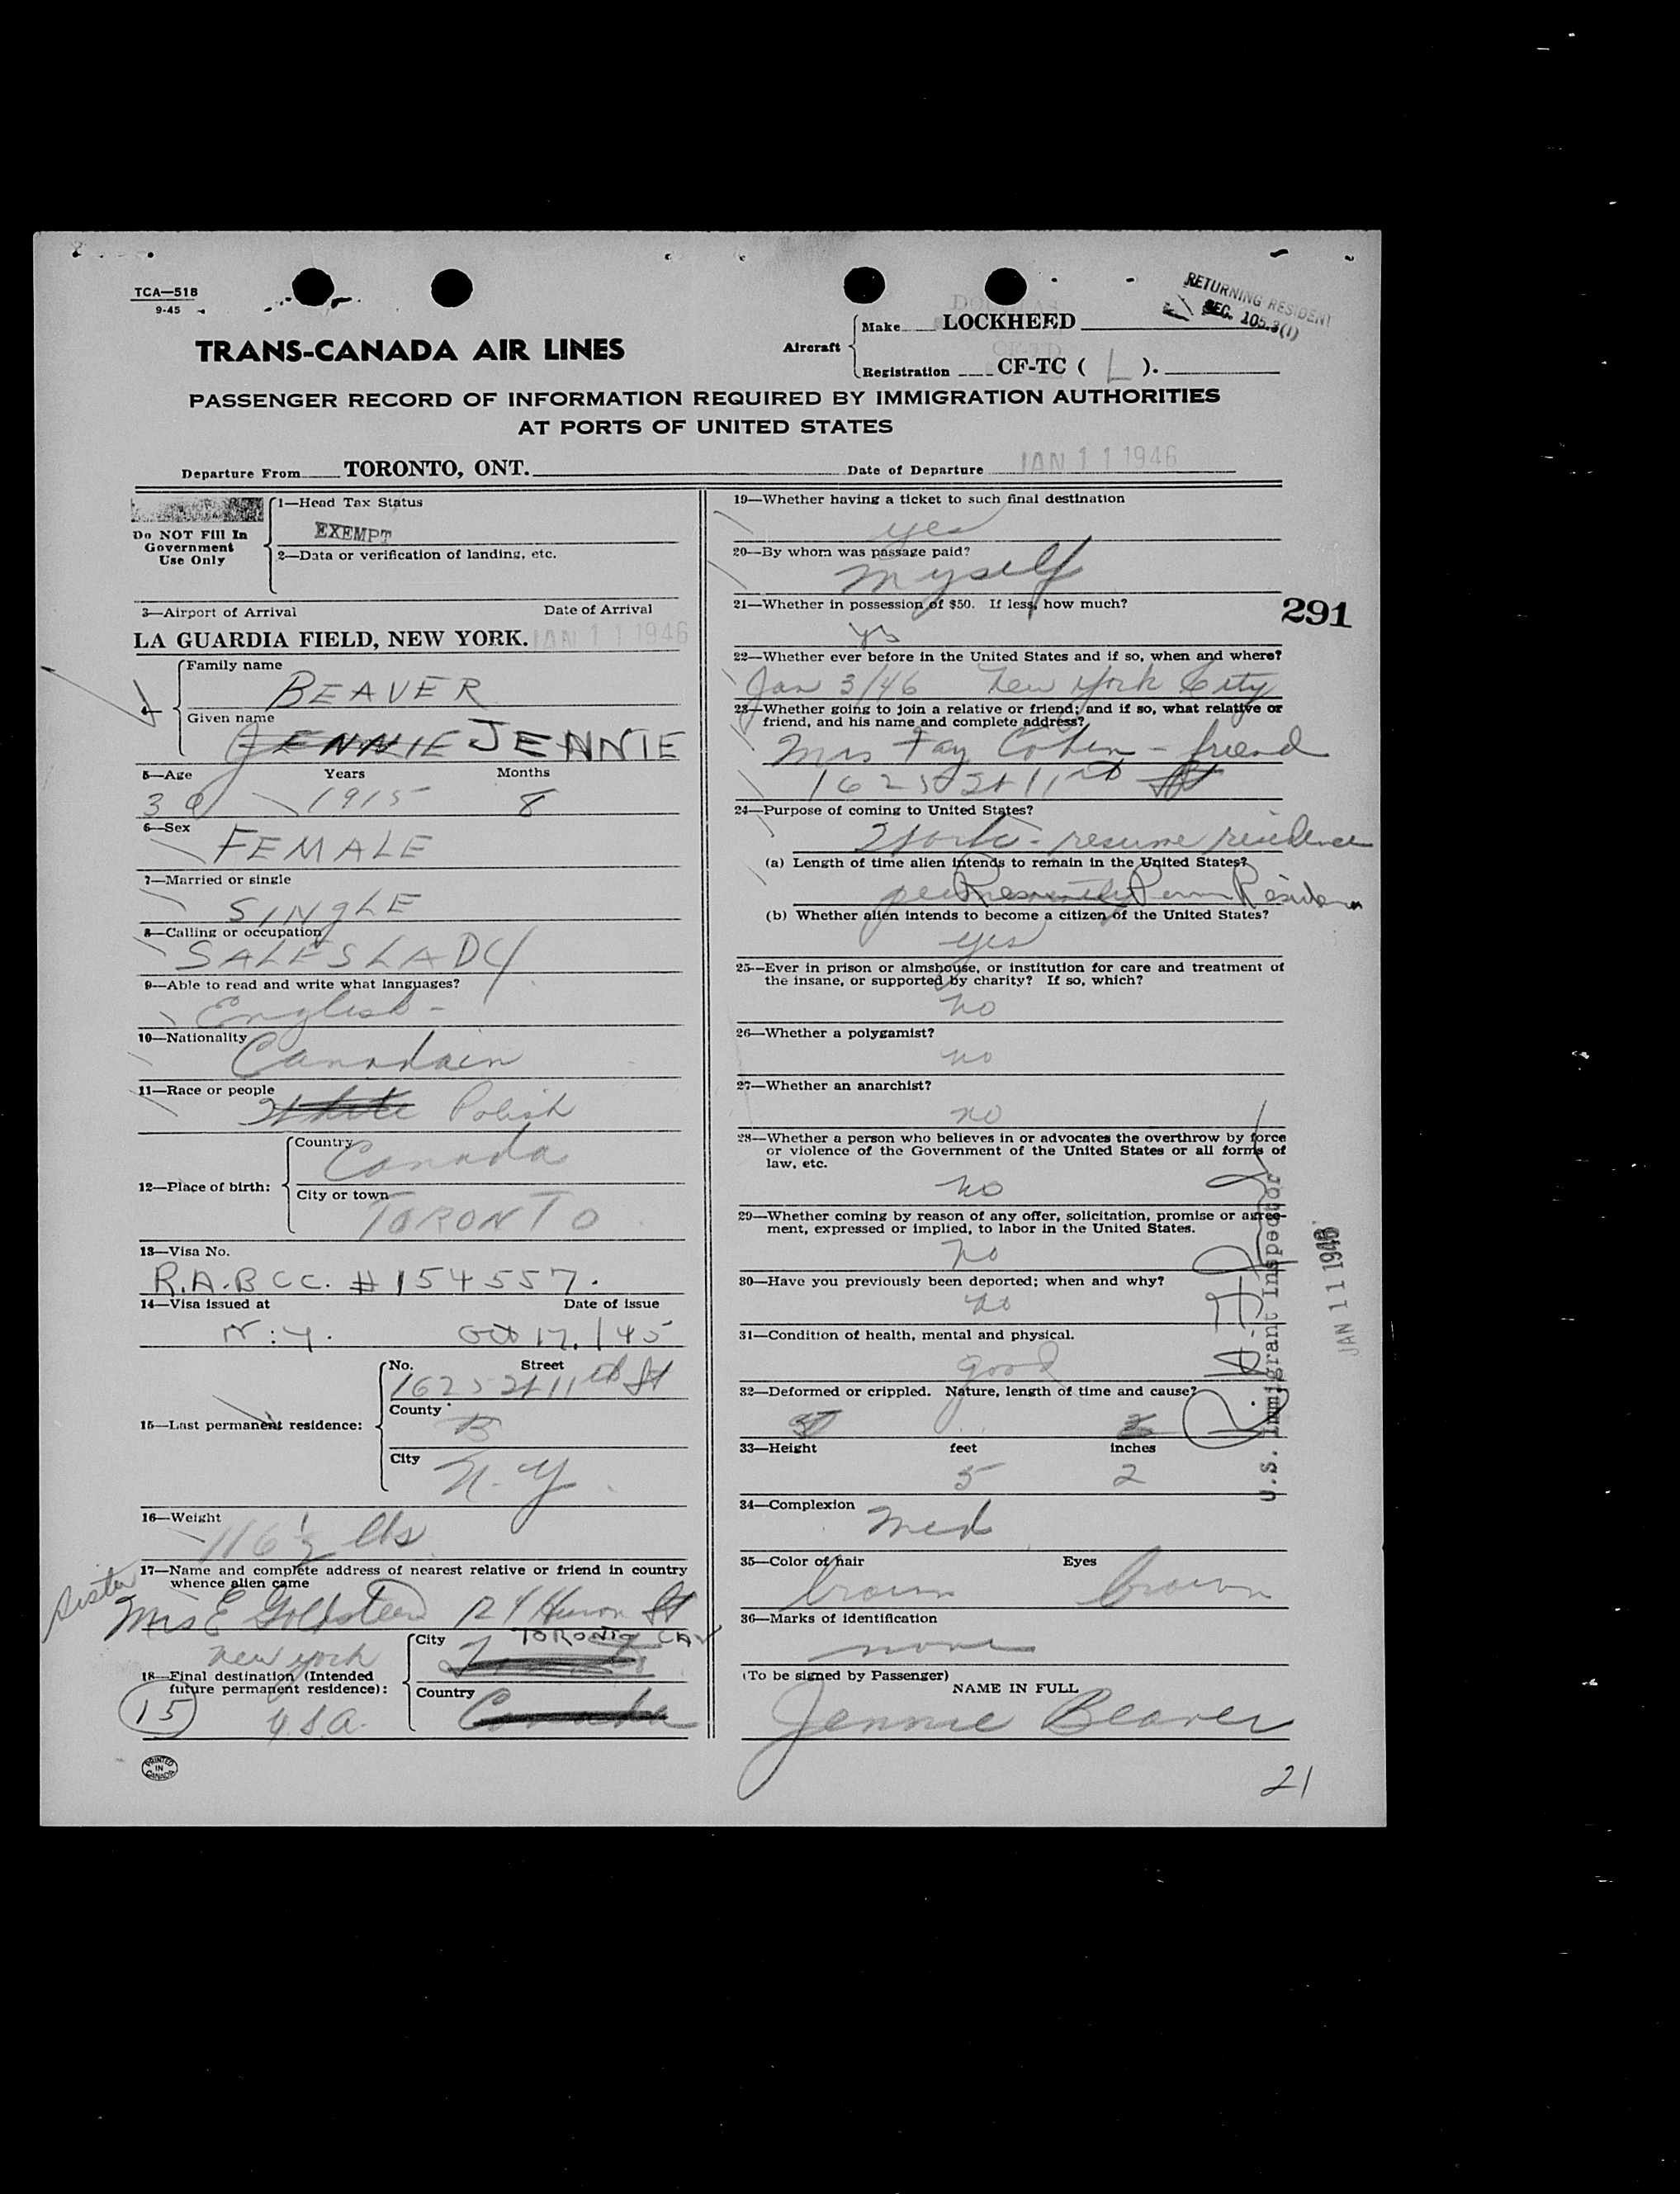 TCA—518
9-45
RETURNING RESIDENT
SEC. 105.3(1)
TRANS-CANADA AIR LINES
Aircraft
Make LOCKHEED
Registration CF-TC ( L ).
PASSENGER RECORD OF INFORMATION REQUIRED BY IMMIGRATION AUTHORITIES
AT PORTS OF UNITED STATES
Departure From TORONTO, ONT. Date of Departure JAN 11 1946
Do NOT Fill In
Government
Use Only
1—Head Tax Status
EXEMPT
2—Data or verification of landing, etc.
3—Airport of Arrival Date of Arrival
LA GUARDIA FIELD, NEW YORK. JAN 11 1946
4—
Family name
BEAVER
Given name
JENNIE JENNIE
5—Age Years Months
30 1915 8
6—Sex
FEMALE
7—Married or single
SINGLE
8—Calling or occupation
SALESLADY
9—Able to read and write what languages?
English -
10—Nationality
Canadain
11—Race or people
White Polish
12—Place of birth:
Country
Canada
City or town
TORONTO
13—Visa No.
R.A.B.C.C. # 154557.
14—Visa issued at Date of issue
N.Y. Oct 17, /45
15—Last permanent residence:
No. Street
1625 W 11th St
County
B
City
N.Y.
16—Weight
116 ½ lbs
17—Name and complete address of nearest relative or friend in country
whence alien came
sister
Mrs E Goldsteen 124 Huron St
TORONTO CAN
18—Final destination (Intended
future permanent residence):
New York
U.S.A.
15
City
Country
Canada
PRINTED
IN
CANADA
19—Whether having a ticket to such final destination
yes
20—By whom was passage paid?
myself
21—Whether in possession of $50. If less, how much?
yes
291
22—Whether ever before in the United States and if so, when and where?
Jan 3/46 New York City
23—Whether going to join a relative or friend; and if so, what relative or
friend, and his name and complete address?
Mrs Fay Cohen - friend
1625 W 11 St
24—Purpose of coming to United States?
Work - resume residence
(a) Length of time alien intends to remain in the United States?
Perm Residence
(b) Whether alien intends to become a citizen of the United States?
yes
25—Ever in prison or almshouse, or institution for care and treatment of
the insane, or supported by charity? If so, which?
no
26—Whether a polygamist?
no
27—Whether an anarchist?
no
28—Whether a person who believes in or advocates the overthrow by force
or violence of the Government of the United States or all forms of
law, etc.
no
29—Whether coming by reason of any offer, solicitation, promise or agree-
ment, expressed or implied, to labor in the United States.
no
30—Have you previously been deported; when and why?
no
31—Condition of health, mental and physical.
good
32—Deformed or crippled. Nature, length of time and cause?
33—Height feet inches
5 2
34—Complexion
Med
35—Color of hair Eyes
brown brown
36—Marks of identification
none
(To be signed by Passenger)
NAME IN FULL
Jennie Beaver
U.S. Immigrant Inspector
JAN 11 1946
21